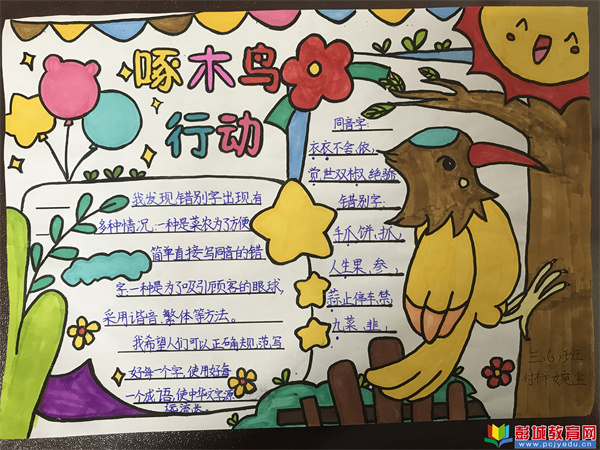 啄木鸟
行动
我发现错别字出现有
多种情况:一种是菜农为了方便
简单直接写同音的错
字;一种是为了吸引顾客的眼球,
采用谐音、繁体等方法。
我希望人们可以正确规范写
好每一个字,使用好每
一个成语,使中华文字源
远流长。
同音字:
衣衣不舍,依,
觉世双
错别字:
手爪饼,抓,
人生果,参,
蒜止停车,禁,
九菜,韭,
三6班
付梓婉
彭城教育网
www.pcjyedu.cn